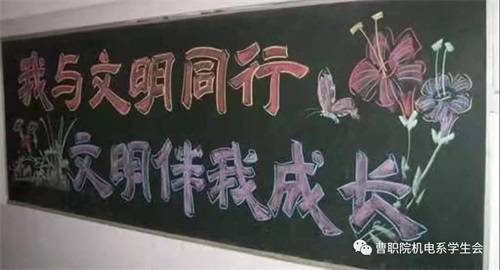 我与文明同行
文明伴我成长
曹职院机电系学生会